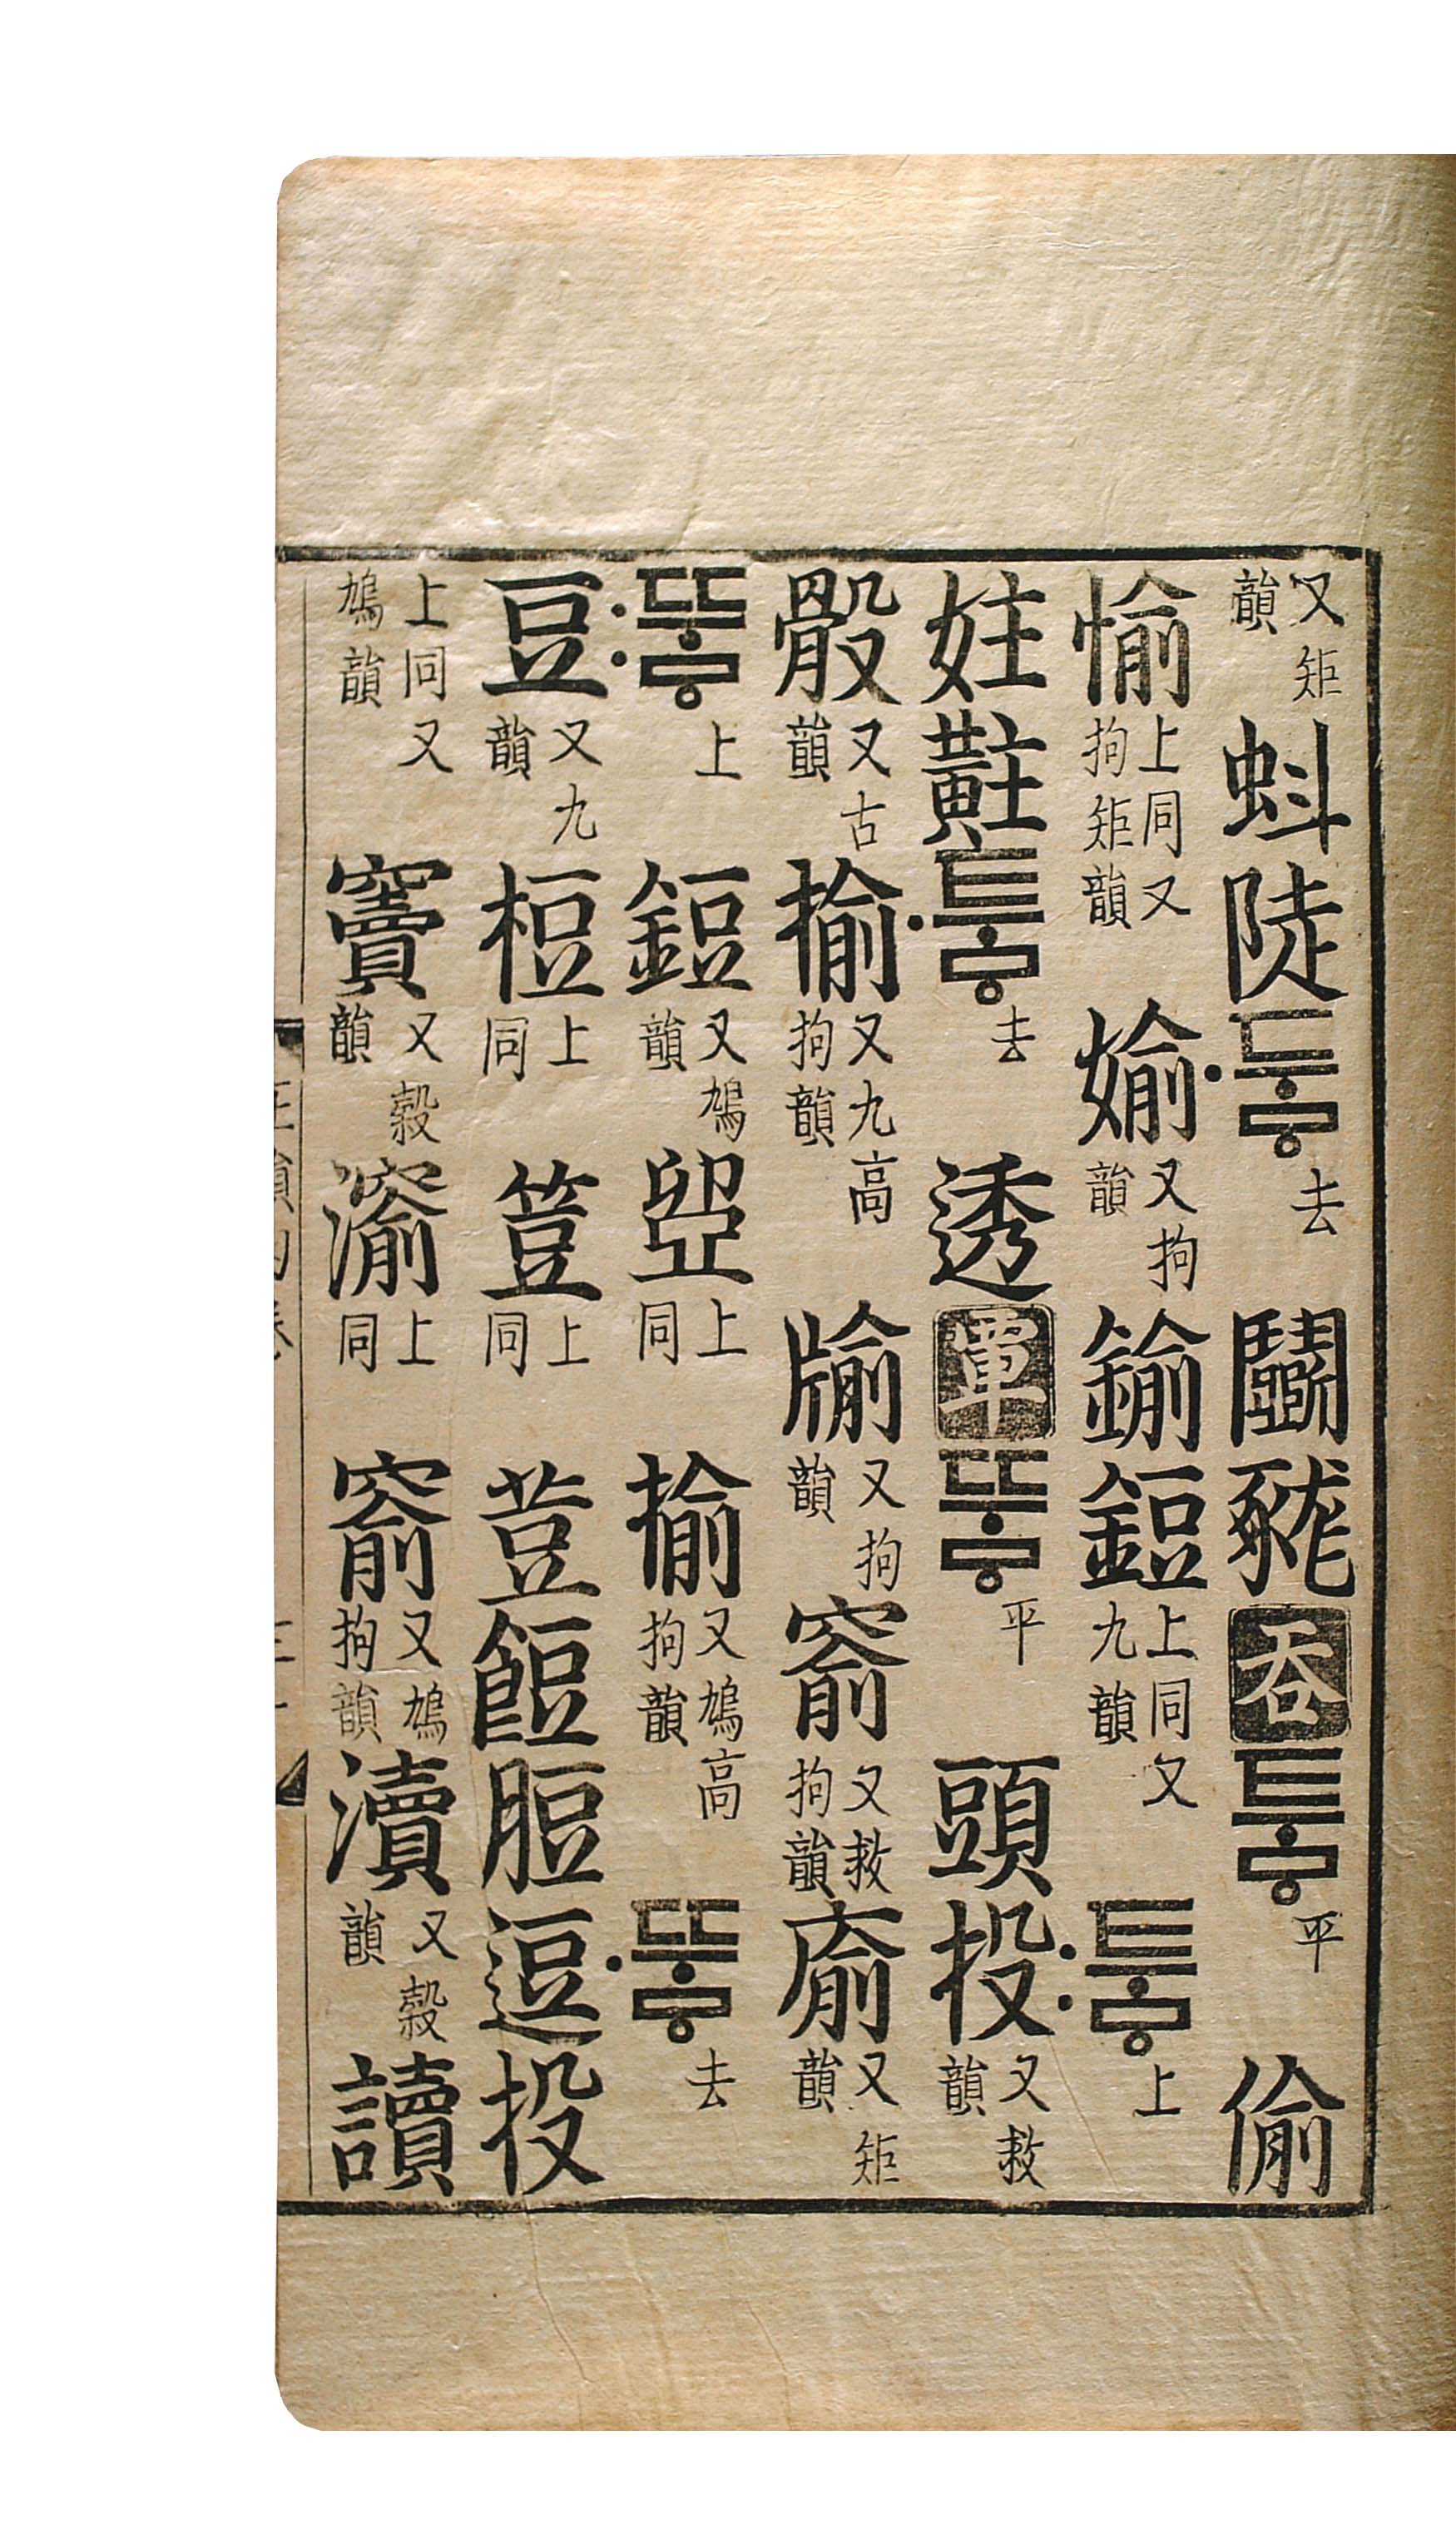 又矩韻蚪陡·두ᇢ去鬪呑투ᇢ平偸
愉上同又拘矩韻媮又拘韻鍮鋀上同又九韻:투ᇢ上
妵黈·투ᇢ去透覃뚜ᇢ平頭投又救韻
骰又古韻揄又九高拘韻牏又拘韻窬又救拘韻㢏又矩韻
:뚜ᇢ上鋀又鳩韻上同揄又鳩高拘韻·뚜ᇢ去
豆又九韻梪上同䇺上同荳餖脰逗投
上同又鳩韻竇又穀韻上同窬又鳩拘韻瀆又穀韻讀